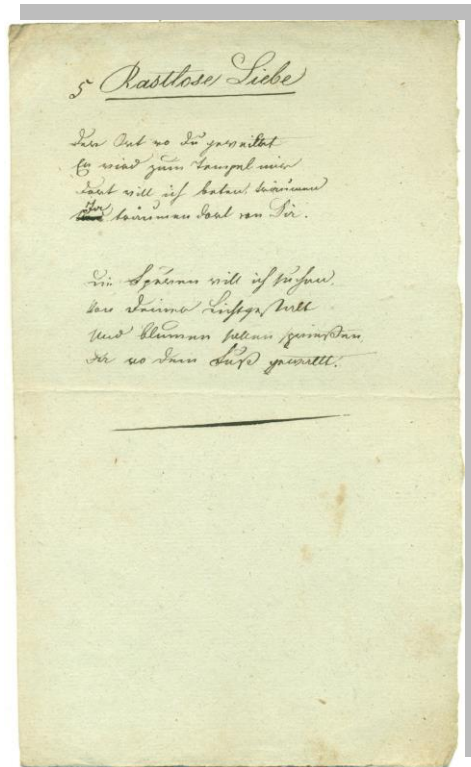 5 Rastlose Liebe
Der Ort wo du geweilet
Er wird zum Tempel mir
Dort will ich beten, träumen
träumen dort von Dir.
Die Spuren will ich suchen
Von Deiner Lichtgestalt
Und Blumen sollen sprießen
wo Dein Fuß gewallt.